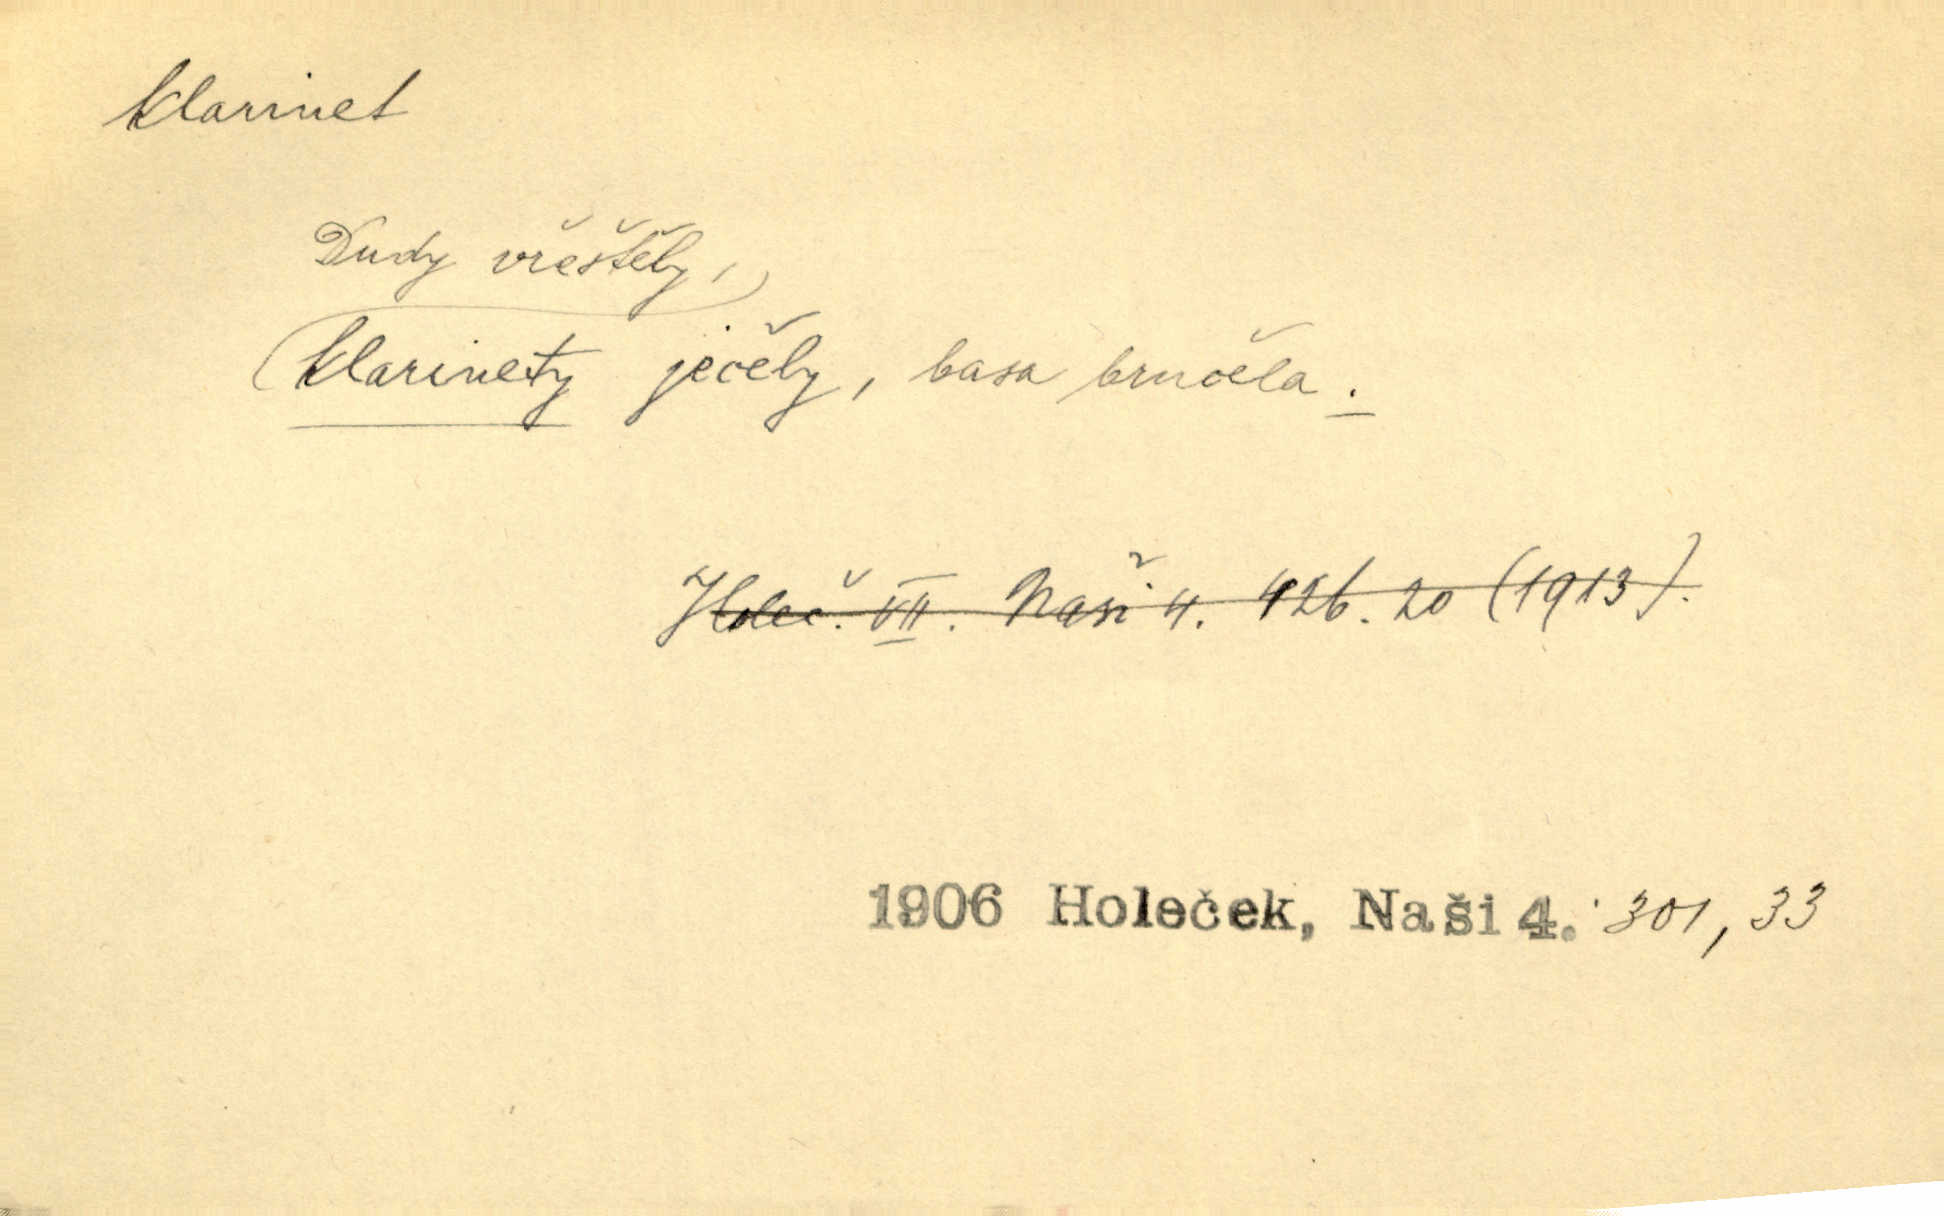 klarinet
Dudy vřeštěly,
klarinety ječely, basa brnčela.
Holeč. VII. Naši 4. 426. 20 (1913).
1906 Holeček, Naši 4. 301, 33